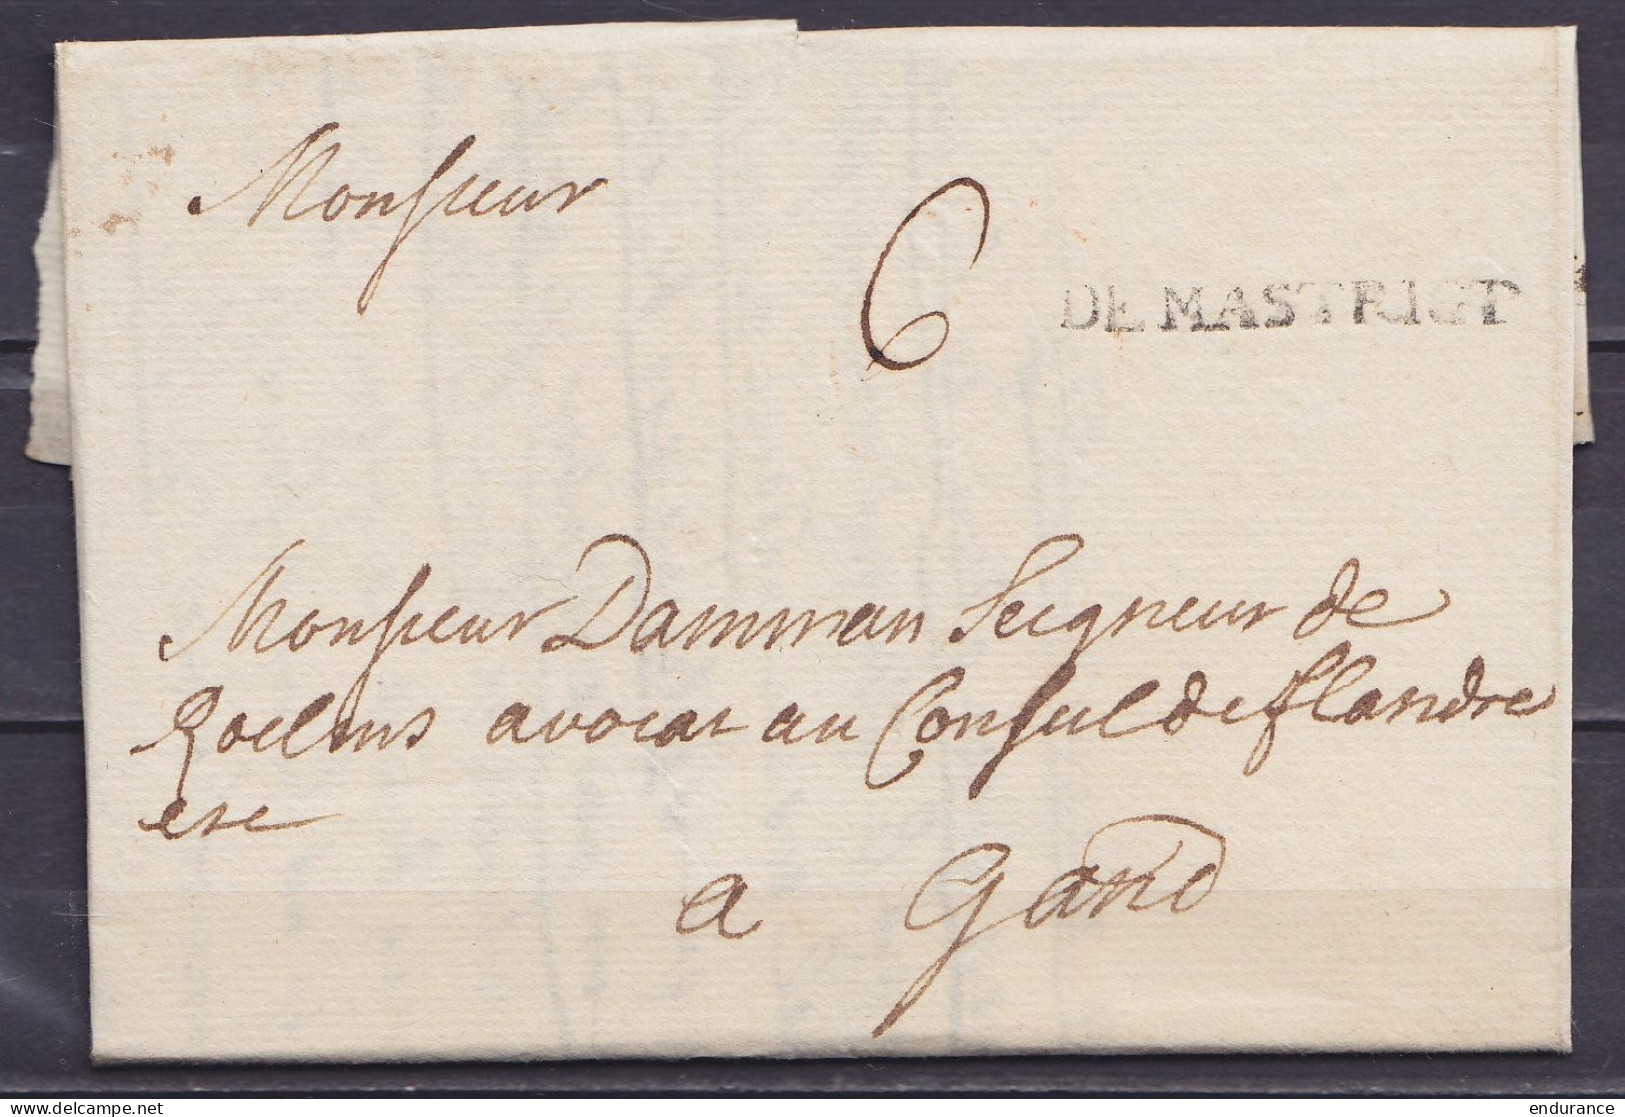 Monsieur
6
DE MASTRIGT
Monsieur Damman Seigneur de
avocat au Consul de flandre
etc
a Gand
delcampe.net
endurance